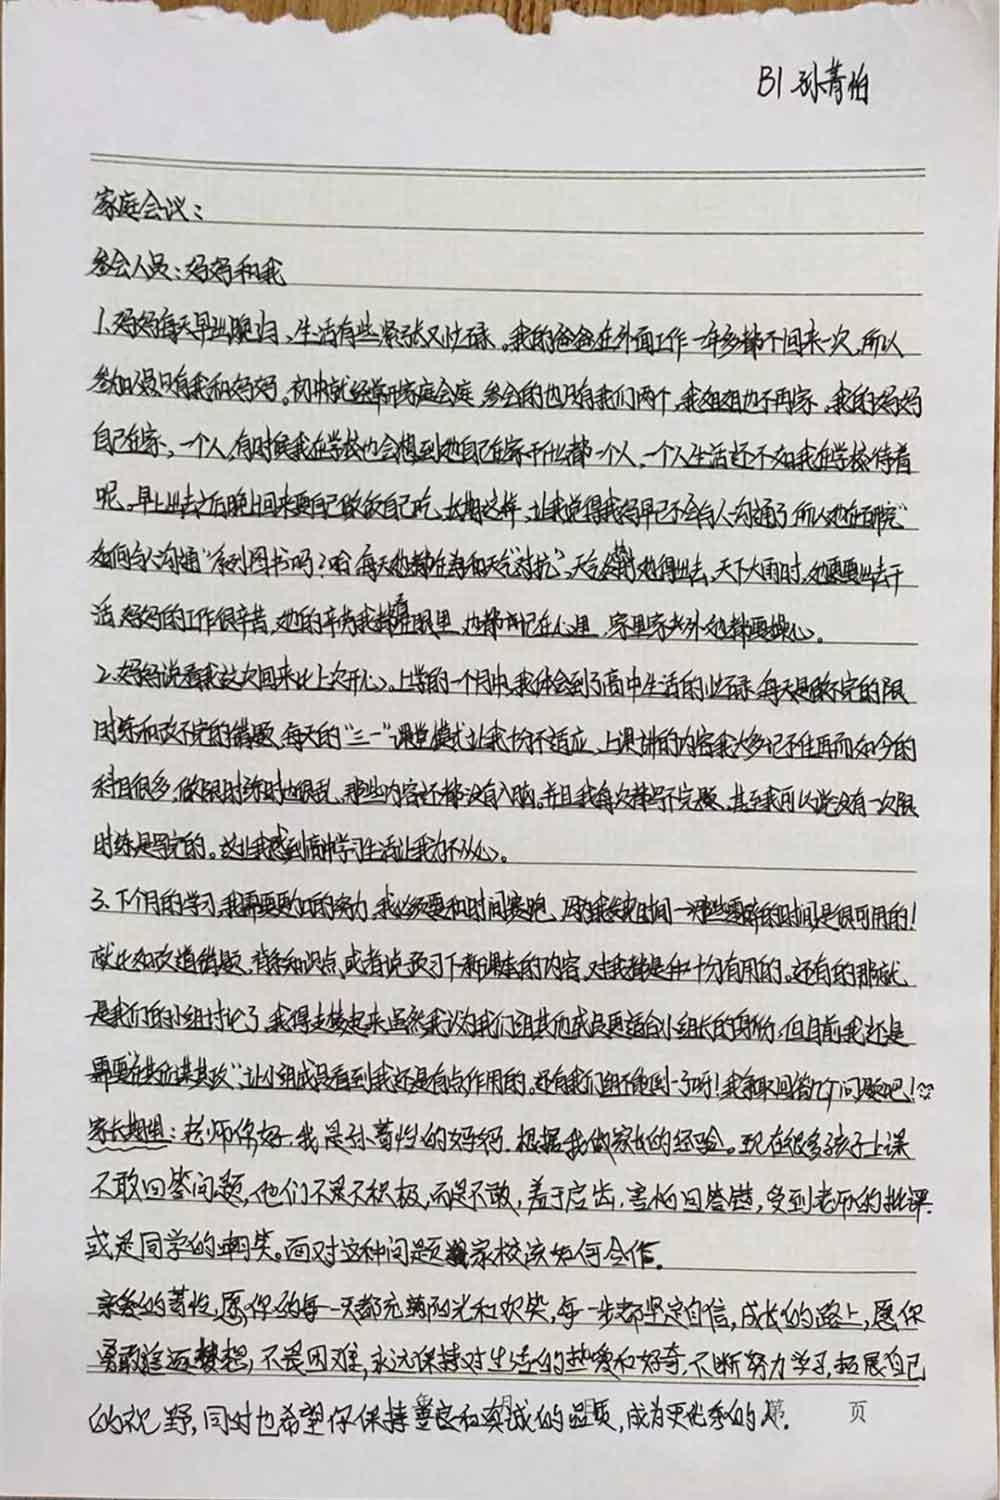 B1 孙菁怡
家庭会议：
参会人员：妈妈和我
1、妈妈每天早出晚归、生活有些紧张又忙碌。我的爸爸在外面工作一年多都不回来一次，所以
参加人员只有我和妈妈。初中就经常开家庭会庭，参会的也只有我们两个，我姐姐也不再家，我的妈妈
自己在家，一个人，有时候我在学校也会想到她自己在家干什么都一个人，一个人生活还不如我在学校待着
呢。早上出去之后晚上回来要自己做饭自己吃，长期这样，让我觉得我妈早已不会与人沟通了所以她在研究“
如何与人沟通”系列图书吗？哈，每天她都在为和天气“对抗”，天气 她得出去，天下大雨时，她要出去干
活，妈妈的工作很辛苦，她的辛劳我都看在眼里，也都忧记在心里，家里家外她都要操心。
2、妈妈说看我这次回来比上次开心。上学的一个月中，我体会到了高中生活的忙碌，每天是做不完的限
时练和改不完的错题，每天的“三一”课堂模式让我十分不适应，上课讲的内容我大多记不住再而如今的
科目很多，做限时练时也很乱，那些内容还都没有入脑。并且我每次都写不完题，甚至我可以说没有一次限
时练是写完的。这让我感到高中学习生活让我力不从心。
3、下个月的学习，我需要更加的努力，我必须要和时间赛跑，因为我缺时间一那些零碎的时间是很可用的！
就比如改道错题，背条知识点，或者说预习下新课本的内容，对我都是十分有用的。还有的那就
是我们的小组讨论了，我得支棱起来，虽然我认为我们组其他成员更适合小组长的身份，但目前，我还是
需要“在其位谋其政”，让小组成员看到我还是有点作用的。还有我们组不能倒一了呀！我争取回答几个问题吧！
家长期望：老师你好，我是孙菁怡的妈妈，根据我做家长的经验。现在很多孩子上课
不敢回答问题，他们不是不积极，而是不敢，羞于启齿，害怕回答错，受到老师的批评，
或是同学的嘲笑。面对这种问题家校该如何合作。
亲爱的菁怡，愿你的每一天都充满阳光和欢笑，每一步都坚定自信，成长的路上，愿你
勇敢追逐梦想，不畏困难，永远保持对生活的热爱和好奇，不断努力学习，拓展自己
的视野，同时也希望你保持善良和真诚的品质，成为更优秀的人。 第 页